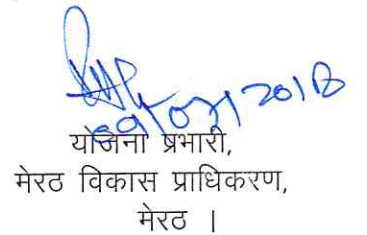 09/07/2018
योजना प्रभारी,
मेरठ विकास प्राधिकरण,
मेरठ ।